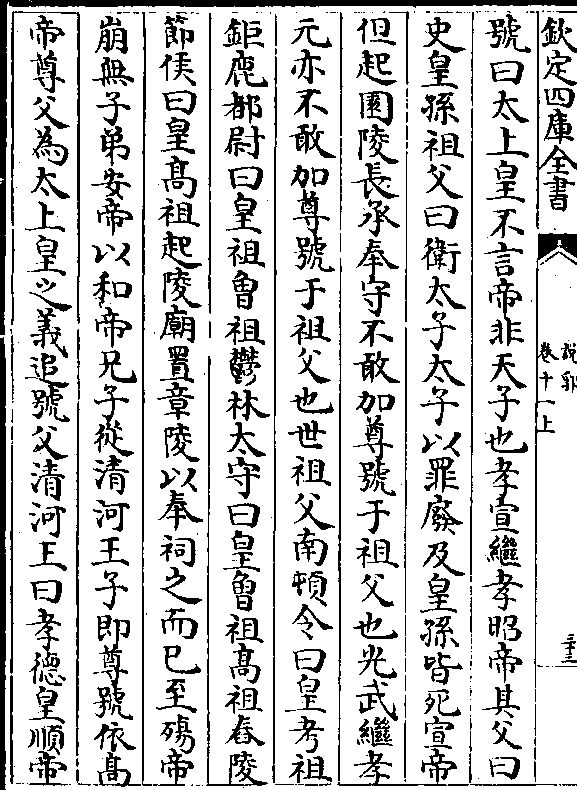 欽定四庫全書
說郛
卷十一上
三十三
號曰太上皇不言帝非天子也孝宣繼孝昭帝其父曰
史皇孫祖父曰衛太子太子以罪廢及皇孫皆死宣帝
但起園陵長承奉守不敢加尊號于祖父也光武繼孝
元亦不敢加尊號于祖父也世祖父南頓令曰皇考祖
鉅鹿都尉曰皇祖曾祖鬱林太守曰皇曾祖高祖舂陵
節侯曰皇高祖起陵廟置章陵以奉祠之而已至殤帝
崩無子弟安帝以和帝兄子從清河王子即尊號依高
帝尊父為太上皇之義追號父清河王曰孝德皇順帝